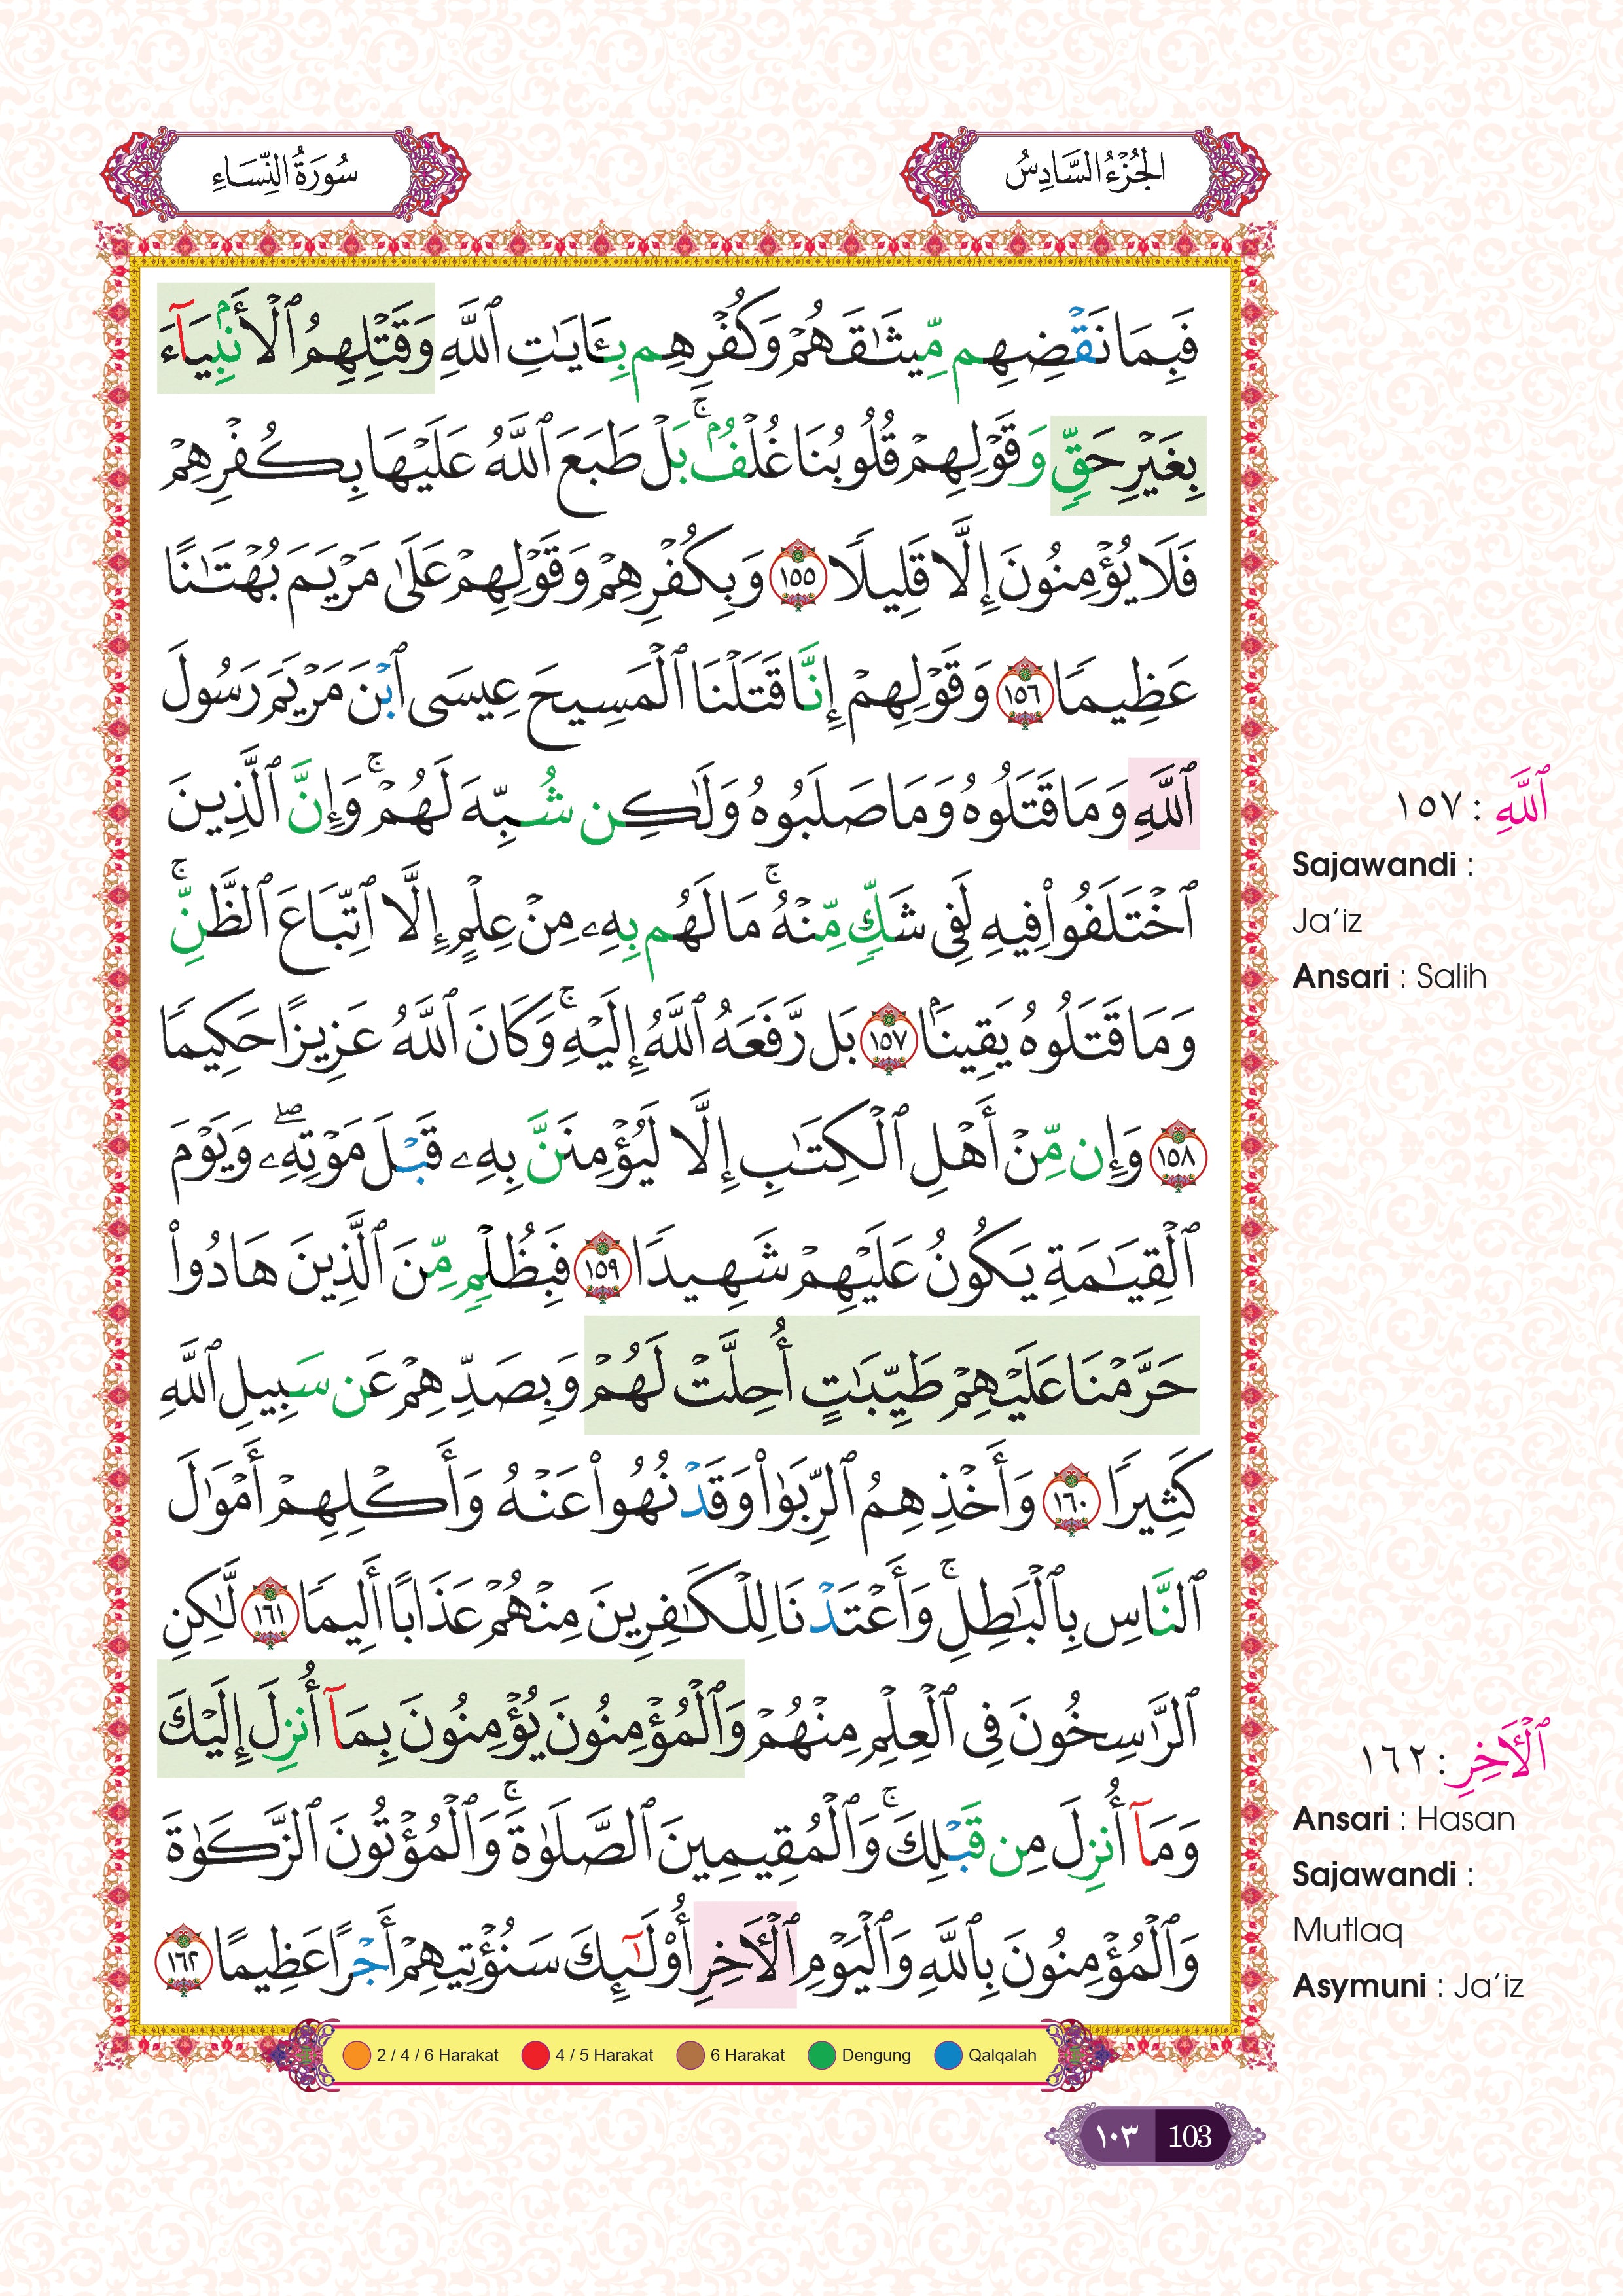 الجُزْءُ السَّادِسُ
سُورَةُ النِّسَاءِ
فَبِمَا نَقْضِهِم مِّيثَٰقَهُمْ وَكُفْرِهِم بِـَٔايَٰتِ ٱللَّهِ وَقَتْلِهِمُ ٱلْأَنۢبِيَآءَ
بِغَيْرِ حَقٍّ وَقَوْلِهِمْ قُلُوبُنَا غُلْفٌۢ ۚ بَلْ طَبَعَ ٱللَّهُ عَلَيْهَا بِكُفْرِهِمْ
فَلَا يُؤْمِنُونَ إِلَّا قَلِيلًا ١٥٥ وَبِكُفْرِهِمْ وَقَوْلِهِمْ عَلَىٰ مَرْيَمَ بُهْتَٰنًا
عَظِيمًا ١٥٦ وَقَوْلِهِمْ إِنَّا قَتَلْنَا ٱلْمَسِيحَ عِيسَى ٱبْنَ مَرْيَمَ رَسُولَ
ٱللَّهِ وَمَا قَتَلُوهُ وَمَا صَلَبُوهُ وَلَٰكِن شُبِّهَ لَهُمْ ۚ وَإِنَّ ٱلَّذِينَ
ٱخْتَلَفُوا۟ فِيهِ لَفِى شَكٍّ مِّنْهُ ۚ مَا لَهُم بِهِۦ مِنْ عِلْمٍ إِلَّا ٱتِّبَاعَ ٱلظَّنِّ ۚ
وَمَا قَتَلُوهُ يَقِينًۢا ١٥٧ بَل رَّفَعَهُ ٱللَّهُ إِلَيْهِ ۚ وَكَانَ ٱللَّهُ عَزِيزًا حَكِيمًا
١٥٨ وَإِن مِّنْ أَهْلِ ٱلْكِتَٰبِ إِلَّا لَيُؤْمِنَنَّ بِهِۦ قَبْلَ مَوْتِهِۦ ۖ وَيَوْمَ
ٱلْقِيَٰمَةِ يَكُونُ عَلَيْهِمْ شَهِيدًا ١٥٩ فَبِظُلْمٍ مِّنَ ٱلَّذِينَ هَادُوا۟
حَرَّمْنَا عَلَيْهِمْ طَيِّبَٰتٍ أُحِلَّتْ لَهُمْ وَبِصَدِّهِمْ عَن سَبِيلِ ٱللَّهِ
كَثِيرًا ١٦٠ وَأَخْذِهِمُ ٱلرِّبَوٰا۟ وَقَدْ نُهُوا۟ عَنْهُ وَأَكْلِهِمْ أَمْوَٰلَ
ٱلنَّاسِ بِٱلْبَٰطِلِ ۚ وَأَعْتَدْنَا لِلْكَٰفِرِينَ مِنْهُمْ عَذَابًا أَلِيمًا ١٦١ لَّٰكِنِ
ٱلرَّٰسِخُونَ فِى ٱلْعِلْمِ مِنْهُمْ وَٱلْمُؤْمِنُونَ يُؤْمِنُونَ بِمَآ أُنزِلَ إِلَيْكَ
وَمَآ أُنزِلَ مِن قَبْلِكَ ۚ وَٱلْمُقِيمِينَ ٱلصَّلَوٰةَ ۚ وَٱلْمُؤْتُونَ ٱلزَّكَوٰةَ
وَٱلْمُؤْمِنُونَ بِٱللَّهِ وَٱلْيَوْمِ ٱلْـَٔاخِرِ أُو۟لَٰٓئِكَ سَنُؤْتِيهِمْ أَجْرًا عَظِيمًا ١٦٢
ٱللَّهِ : ١٥٧
Sajawandi :
Ja'iz
Ansari : Salih
ٱلْـَٔاخِرِ : ١٦٢
Ansari : Hasan
Sajawandi :
Mutlaq
Asymuni : Ja'iz
2 / 4 / 6 Harakat 4 / 5 Harakat 6 Harakat Dengung Qalqalah
١٠٣ 103